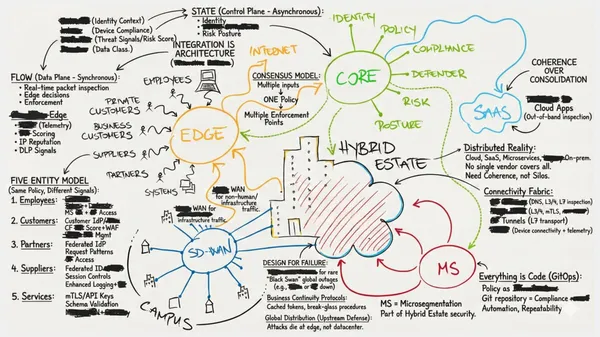 STATE (Control Plane - Asynchronous):
• Identity
• Risk Posture
(Identity Context)
(Device Compliance)
(Threat Signals/Risk Score)
(Data Class.)
INTEGRATION IS
ARCHITECTURE
FLOW (Data Plane - Synchronous):
• Real-time packet inspection
• Edge decisions
• Enforcement
Edge
(Telemetry)
Scoring
• IP Reputation
• DLP Signals
EMPLOYEES
PRIVATE
CUSTOMERS
BUSINESS
CUSTOMERS
SUPPLIERS
PARTNERS
SYSTEMS
EDGE
INTERNET
CONSENSUS MODEL:
Multiple inputs
ONE Policy
Multiple Enforcement
Points
CORE
IDENTITY
POLICY
COMPLIANCE
DEFENDER
RISK
POSTURE
COHERENCE OVER
CONSOLIDATION
SAAS
Cloud Apps
(Out-of-band inspection)
HYBRID
ESTATE
Distributed Reality:
Cloud, SaaS, Microservices, On-prem.
No single vendor covers all.
Need Coherence, not Silos.
Connectivity Fabric:
(DNS, L3/4, L7 inspection)
(L3/4, mTLS,
Tunnels (L7 transport)
(Device connectivity + telemetry)
FIVE ENTITY MODEL
(Same Policy, Different Signals):
1. Employees:
MS + Access
2. Customers:
Customer IdP/
CF Score+WAF
Mgmt
3. Partners:
Federated IdP
Request Patterns
Access
4. Suppliers:
Federated ID
Session Controls
Enhanced Logging+
5. Services:
mTLS/API Keys
Schema Validation
WAN for
infrastructure traffic.
WAN
for non-human/
infrastructure
traffic.
SD-WAN
CAMPUS
DESIGN FOR FAILURE:
for rare
"Black Swan" global outages
(e.g., or down)
Business Continuity Protocols:
Cached tokens, break-glass procedures
Global Distribution (Upstream Defense)
Attacks die at edge, not datacenter.
MS
MS = Microsegmentation
Part of Hybrid Estate security.
Everything is Code (GitOps)
Policy as
Git repository = Compliance
Automation, Repeatability